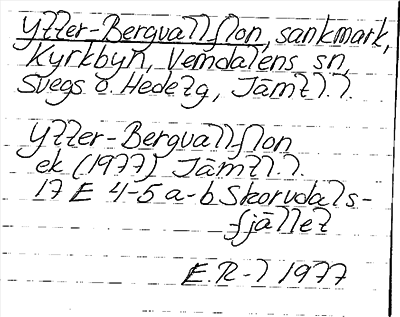 Ytter-Bergvallflon, sankmark,
Kyrkbyn, Vemdalens sn,
Svegs o. Hede tg, Jämtl.l.
Ytter-Bergvallflon
ek (1977) Jämtl.l.
17 E 4-5 a-b Skorvdals-
fjället
E.R-l 1977